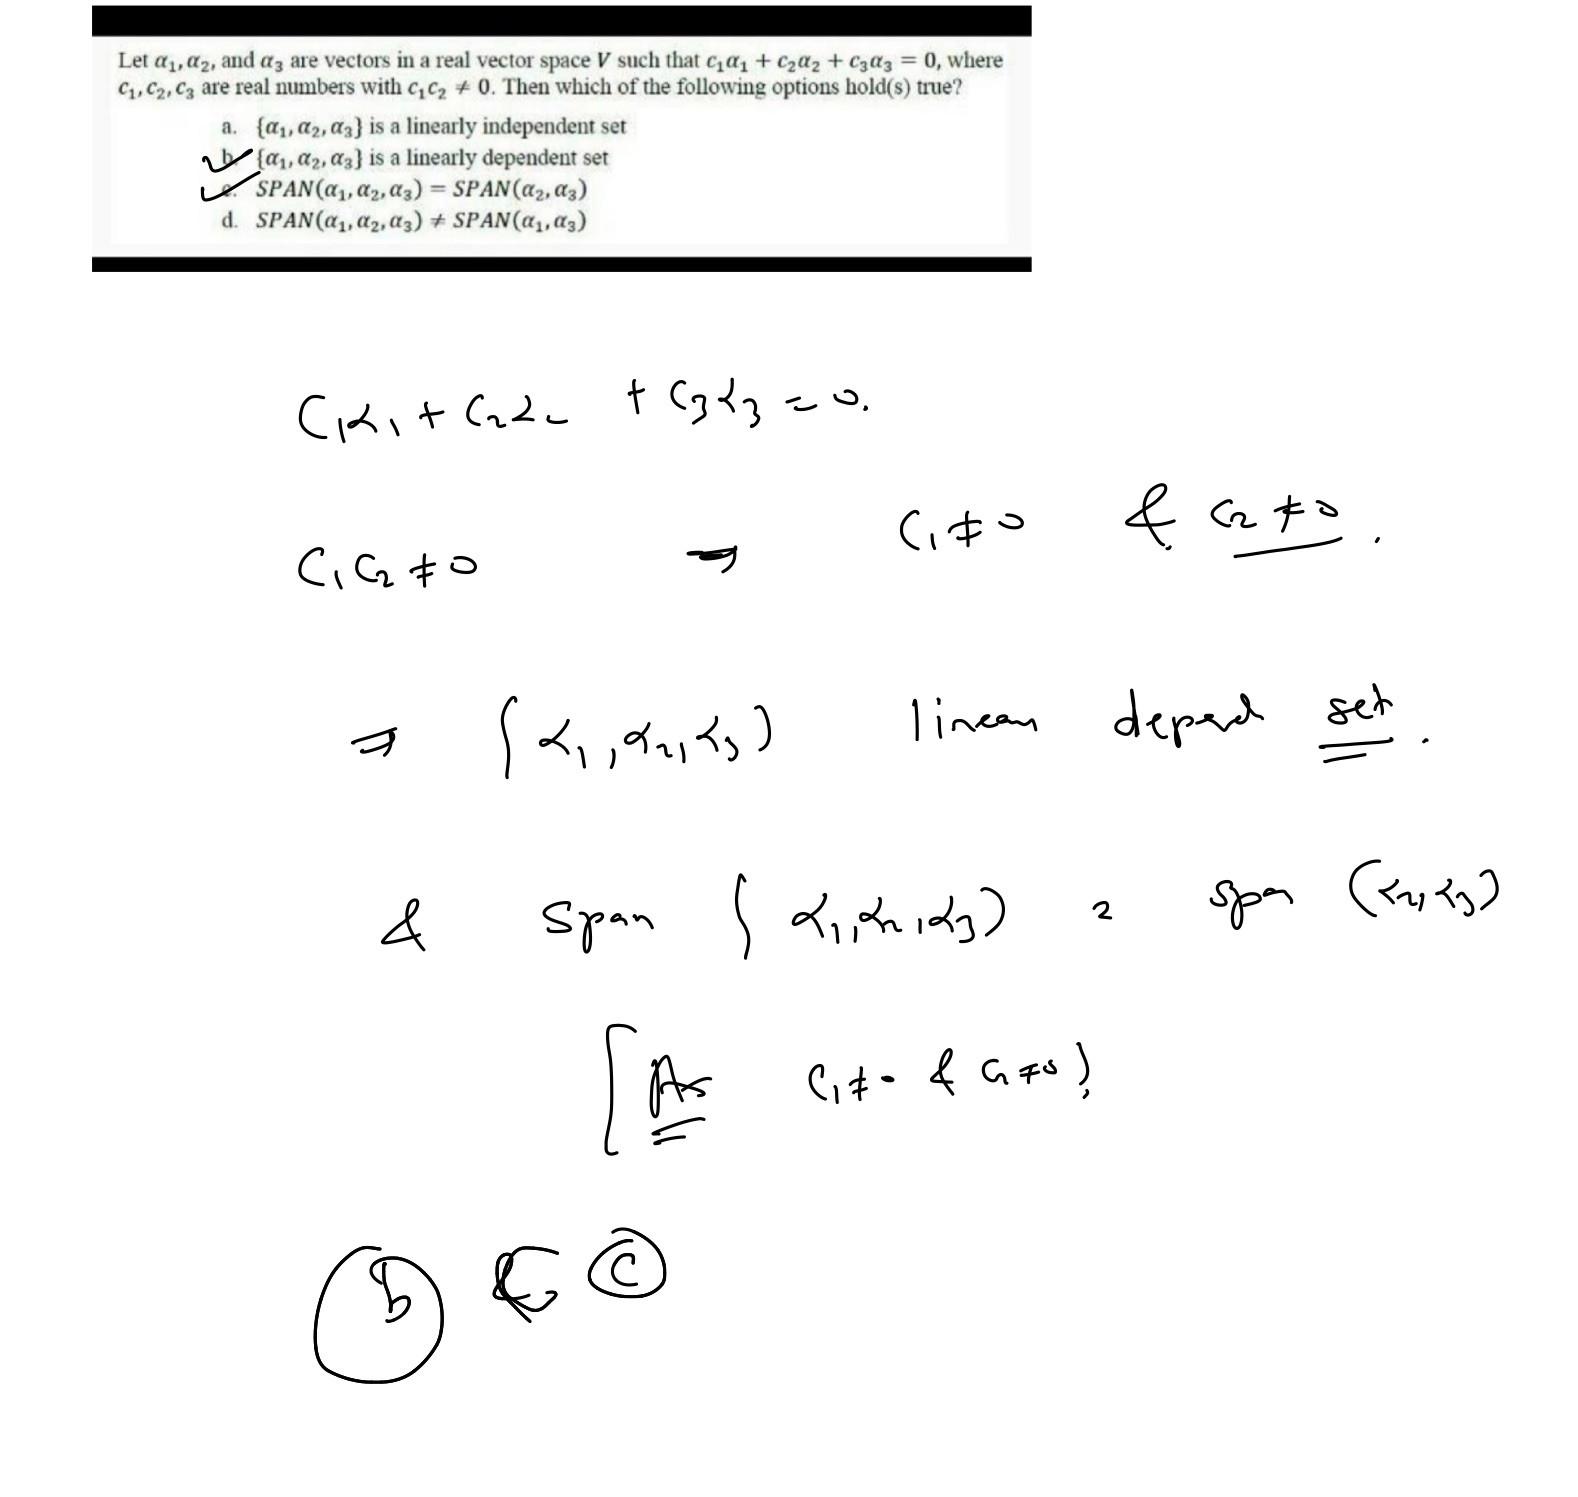 Let α₁, α₂, and α₃ are vectors in a real vector space V such that c₁α₁ + c₂α₂ + c₃α₃ = 0, where
c₁, c₂, c₃ are real numbers with c₁c₂ ≠ 0. Then which of the following options hold(s) true?
a. {α₁, α₂, α₃} is a linearly independent set
b. {α₁, α₂, α₃} is a linearly dependent set
c. SPAN(α₁, α₂, α₃) = SPAN(α₂, α₃)
d. SPAN(α₁, α₂, α₃) ≠ SPAN(α₁, α₃)
C₁α₁ + C₂α₂ + C₃α₃ = 0.
C₁C₂ ≠ 0 ⇒ C₁ ≠ 0 & C₂ ≠ 0.
⇒ {α₁, α₂, α₃) linear depend set.
& span {α₁, α₂, α₃) = span (α₂, α₃)
[As C₁ ≠ 0 & C₂ ≠ 0)
b & c